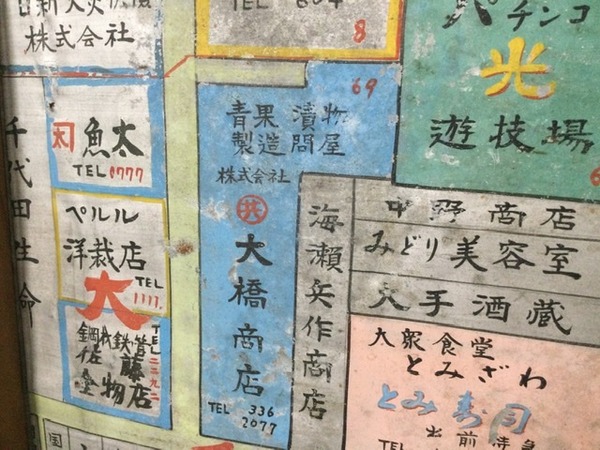 株式会社
TEL 604
8
チンコ
光
遊技場
69
青果 漬物
製造問屋
株式会社
大橋商店
TEL 336
2077
魚太
TEL 0777
千代田生命
ペルル
洋裁店
TEL
1111
大
佐藤
金物店
TEL
二二九二
海瀬兵作商店
中野商店
みどり美容室
大手酒蔵
大衆食堂
とみざわ
とみ寿司
出前
TEL
国